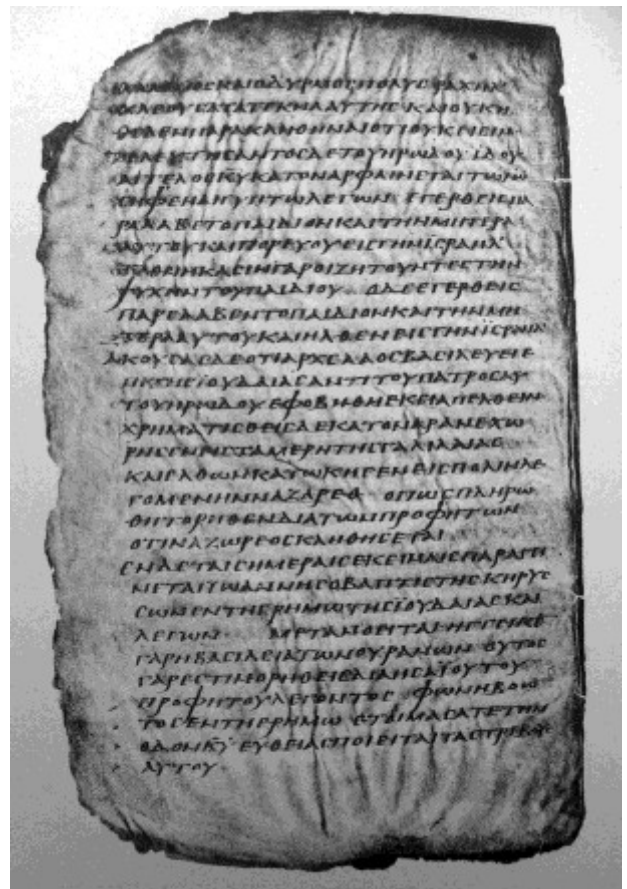 ΚΛΑΥΘΜΟΣΚΑΙΟΔΥΡΜΟΣΠΟΛΥΣΡΑΧΙΛ
ΚΛΕΟΥΣΑΤΑΤΕΚΝΑΑΥΤΗΣ ΚΑΙΟΥΚΗ
ΘΕΛΕΝΠΑΡΑΚΛΗΘΗΝΑΙΟΤΙΟΥΚΕΙΣΙΝ
ΤΕΛΕΥΤΗΣΑΝΤΟΣΔΕΤΟΥΗΡΩΔΟΥ ΙΔΟΥ
ΑΓΓΕΛΟΣΚΥΚΑΤΟΝΑΡΦΑΙΝΕΤΑΙΤΩΙΩ
ΣΗΦΕΝΑΙΓΥΠΤΩΛΕΓΩΝ ΕΓΕΡΘΕΙΣΠΑ
ΡΑΛΑΒΕΤΟΠΑΙΔΙΟΝΚΑΙΤΗΝΜΗΤΕΡΑ
ΑΥΤΟΥΚΑΙΠΟΡΕΥΟΥΕΙΣΓΗΝΙΣΡΑΗΛ
ΤΕΘΝΗΚΑΣΙΝΓΑΡΟΙΖΗΤΟΥΝΤΕΣΤΗΝ
ΨΥΧΗΝΤΟΥΠΑΙΔΙΟΥ ΟΔΕΕΓΕΡΘΕΙΣ
ΠΑΡΕΛΑΒΕΝΤΟΠΑΙΔΙΟΝΚΑΙΤΗΝΜΗ
ΤΕΡΑΑΥΤΟΥΚΑΙΗΛΘΕΝΕΙΣΓΗΝΙΣΡΑΗΛ
ΑΚΟΥΣΑΣΔΕΟΤΙΑΡΧΕΛΑΟΣΒΑΣΙΛΕΥΕΙΕ
ΠΙΤΗΣΙΟΥΔΑΙΑΣΑΝΤΙΤΟΥΠΑΤΡΟΣΑΥ
ΤΟΥΗΡΩΔΟΥΕΦΟΒΗΘΗΕΚΕΙΑΠΕΛΘΕΙΝ
ΧΡΗΜΑΤΙΣΘΕΙΣΔΕΚΑΤΟΝΑΡΑΝΕΧΩ
ΡΗΣΕΝΕΙΣΤΑΜΕΡΗΤΗΣΓΑΛΙΛΑΙΑΣ
ΚΑΙΕΛΘΩΝΚΑΤΩΚΗΣΕΝΕΙΣΠΟΛΙΝΛΕ
ΓΟΜΕΝΗΝΝΑΖΑΡΕΘ ΟΠΩΣΠΛΗΡΩ
ΘΗΤΟΡΗΘΕΝΔΙΑΤΩΝΠΡΟΦΗΤΩΝ
ΟΤΙΝΑΖΩΡΕΟΣΚΛΗΘΗΣΕΤΑΙ
ΕΝΔΕΤΑΙΣΗΜΕΡΑΙΣΕΚΕΙΝΑΙΣΠΑΡΑΓΙ
ΝΕΤΑΙΙΩΑΝΝΗΣΟΒΑΠΤΙΣΤΗΣΚΗΡΥΣ
ΣΩΝΕΝΤΗΕΡΗΜΩΤΗΣΙΟΥΔΑΙΑΣΚΑΙ
ΛΕΓΩΝ ΜΕΤΑΝΟΕΙΤΑΙΗΓΓΕΙΚΕ
ΓΑΡΗΒΑΣΙΛΕΙΑΤΩΝΟΥΡΑΝΩΝ ΟΥΤΟΣ
ΓΑΡΕΣΤΙΝΟΡΗΘΕΙΣΔΙΑΗΣΑΙΟΥΤΟΥ
ΠΡΟΦΗΤΟΥΛΕΓΟΝΤΟΣ ΦΩΝΗΒΟΩ
ΤΟΣΕΝΤΗΕΡΗΜΩ ΕΤΟΙΜΑΣΑΤΕΤΗΝ
ΟΔΟΝΚΥ ΕΥΘΕΙΑΣΠΟΙΕΙΤΑΙΤΑΣΤΡΙΒΟΥΣ
ΑΥΤΟΥ